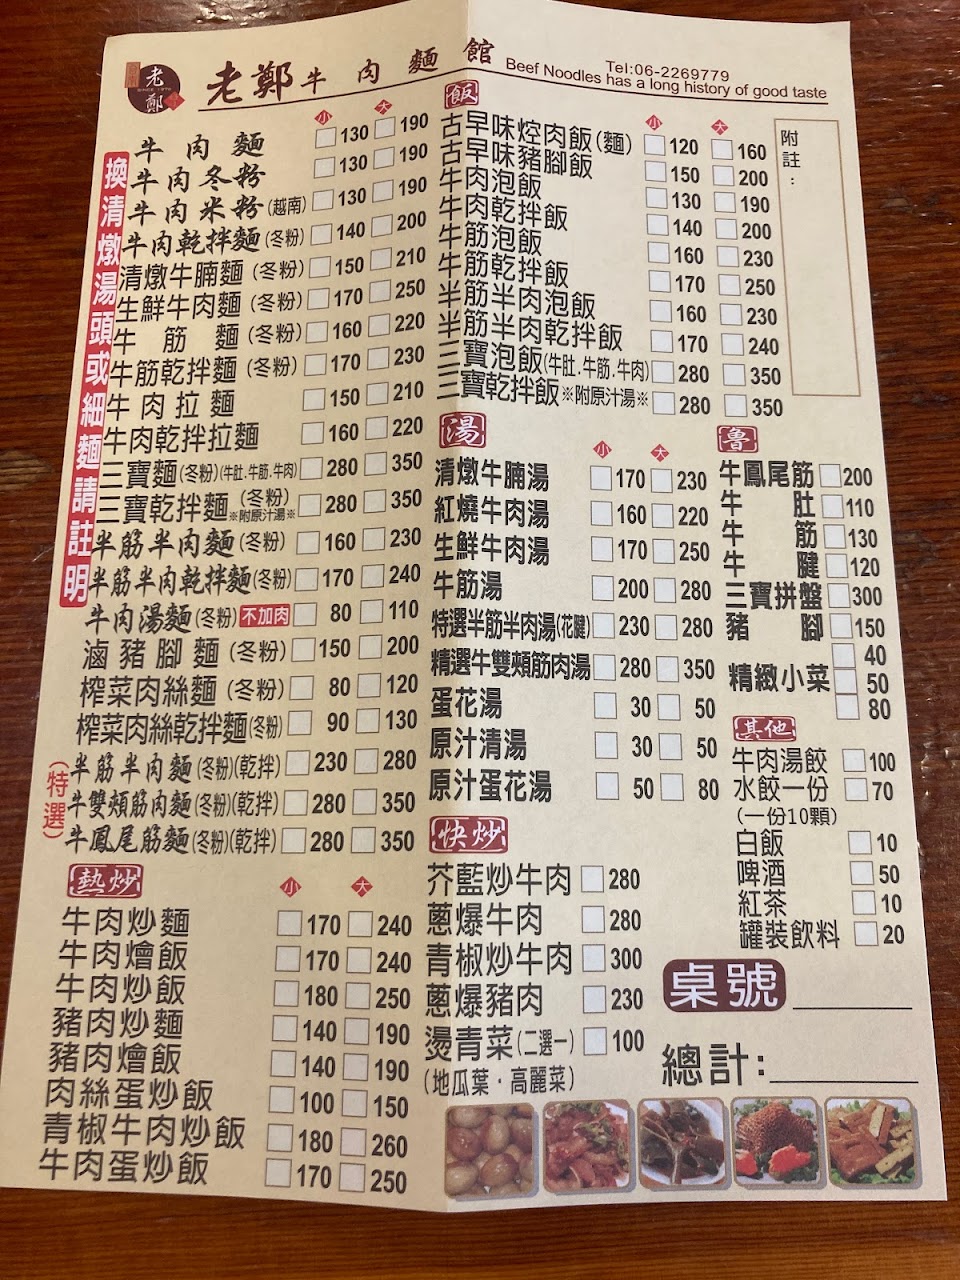 老鄭
SINCE 1970
老鄭牛肉麵館
Tel:06-2269779
Beef Noodles has a long history of good taste
換清燉湯頭或細麵請註明
小 大
牛肉麵 130 190
牛肉冬粉 130 190
牛肉米粉(越南) 130 190
牛肉乾拌麵(冬粉) 140 200
清燉牛腩麵(冬粉) 150 210
生鮮牛肉麵(冬粉) 170 250
牛筋麵(冬粉) 160 220
牛筋乾拌麵(冬粉) 170 230
牛肉拉麵 150 210
牛肉乾拌拉麵 160 220
三寶麵(冬粉)(牛肚.牛筋.牛肉) 280 350
三寶乾拌麵(冬粉)※附原汁湯※ 280 350
半筋半肉麵(冬粉) 160 230
半筋半肉乾拌麵(冬粉) 170 240
牛肉湯麵(冬粉)不加肉 80 110
滷豬腳麵(冬粉) 150 200
榨菜肉絲麵(冬粉) 80 120
榨菜肉絲乾拌麵(冬粉) 90 130
(特選)
半筋半肉麵(冬粉)(乾拌) 230 280
牛雙頰筋肉麵(冬粉)(乾拌) 280 350
牛鳳尾筋麵(冬粉)(乾拌) 280 350
熱炒 小 大
牛肉炒麵 170 240
牛肉燴飯 170 240
牛肉炒飯 180 250
豬肉炒麵 140 190
豬肉燴飯 140 190
肉絲蛋炒飯 100 150
青椒牛肉炒飯 180 260
牛肉蛋炒飯 170 250
飯 小 大
古早味焢肉飯(麵) 120 160
古早味豬腳飯 150 200
牛肉泡飯 130 190
牛肉乾拌飯 140 200
牛筋泡飯 160 230
牛筋乾拌飯 170 250
半筋半肉泡飯 160 230
半筋半肉乾拌飯 170 240
三寶泡飯(牛肚.牛筋.牛肉) 280 350
三寶乾拌飯※附原汁湯※ 280 350
附註:
湯 小 大
清燉牛腩湯 170 230
紅燒牛肉湯 160 220
生鮮牛肉湯 170 250
牛筋湯 200 280
特選半筋半肉湯(花腱) 230 280
精選牛雙頰筋肉湯 280 350
蛋花湯 30 50
原汁清湯 30 50
原汁蛋花湯 50 80
快炒
芥藍炒牛肉 280
蔥爆牛肉 280
青椒炒牛肉 300
蔥爆豬肉 230
燙青菜(二選一) 100
(地瓜葉·高麗菜)
魯
牛鳳尾筋 200
牛肚 110
牛筋 130
牛腱 120
三寶拼盤 300
豬腳 150
精緻小菜 40
50
80
其他
牛肉湯餃 100
水餃一份 70
(一份10顆)
白飯 10
啤酒 50
紅茶 10
罐裝飲料 20
桌號
總計: